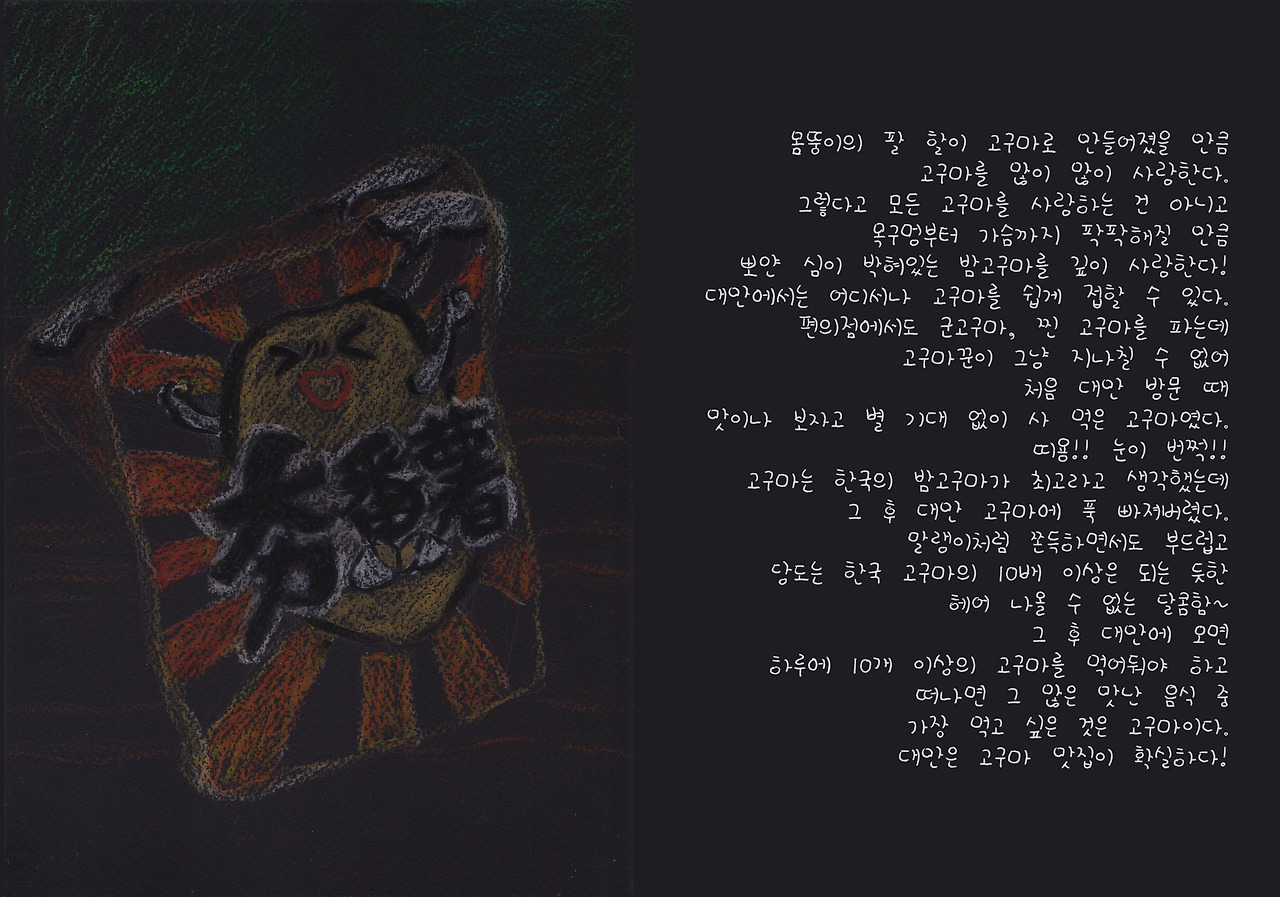 夯番薯
몸뚱이의 팔 할이 고구마로 만들어졌을 만큼
고구마를 많이 많이 사랑한다.
그렇다고 모든 고구마를 사랑하는 건 아니고
목구멍부터 가슴까지 팍팍해질 만큼
뽀얀 심이 박혀있는 밤고구마를 깊이 사랑한다!
대만에서는 어디서나 고구마를 쉽게 접할 수 있다.
편의점에서도 군고구마, 찐 고구마를 파는데
고구마꾼이 그냥 지나칠 수 없어
처음 대만 방문 때
맛이나 보자고 별 기대 없이 사 먹은 고구마였다.
띠용!! 눈이 번쩍!!
고구마는 한국의 밤고구마가 최고라고 생각했는데
그 후 대만 고구마에 푹 빠져버렸다.
말랭이처럼 쫀득하면서도 부드럽고
당도는 한국 고구마의 10배 이상은 되는 듯한
헤어 나올 수 없는 달콤함~
그 후 대만에 오면
하루에 10개 이상의 고구마를 먹어둬야 하고
떠나면 그 많은 맛난 음식 중
가장 먹고 싶은 것은 고구마이다.
대만은 고구마 맛집이 확실하다!